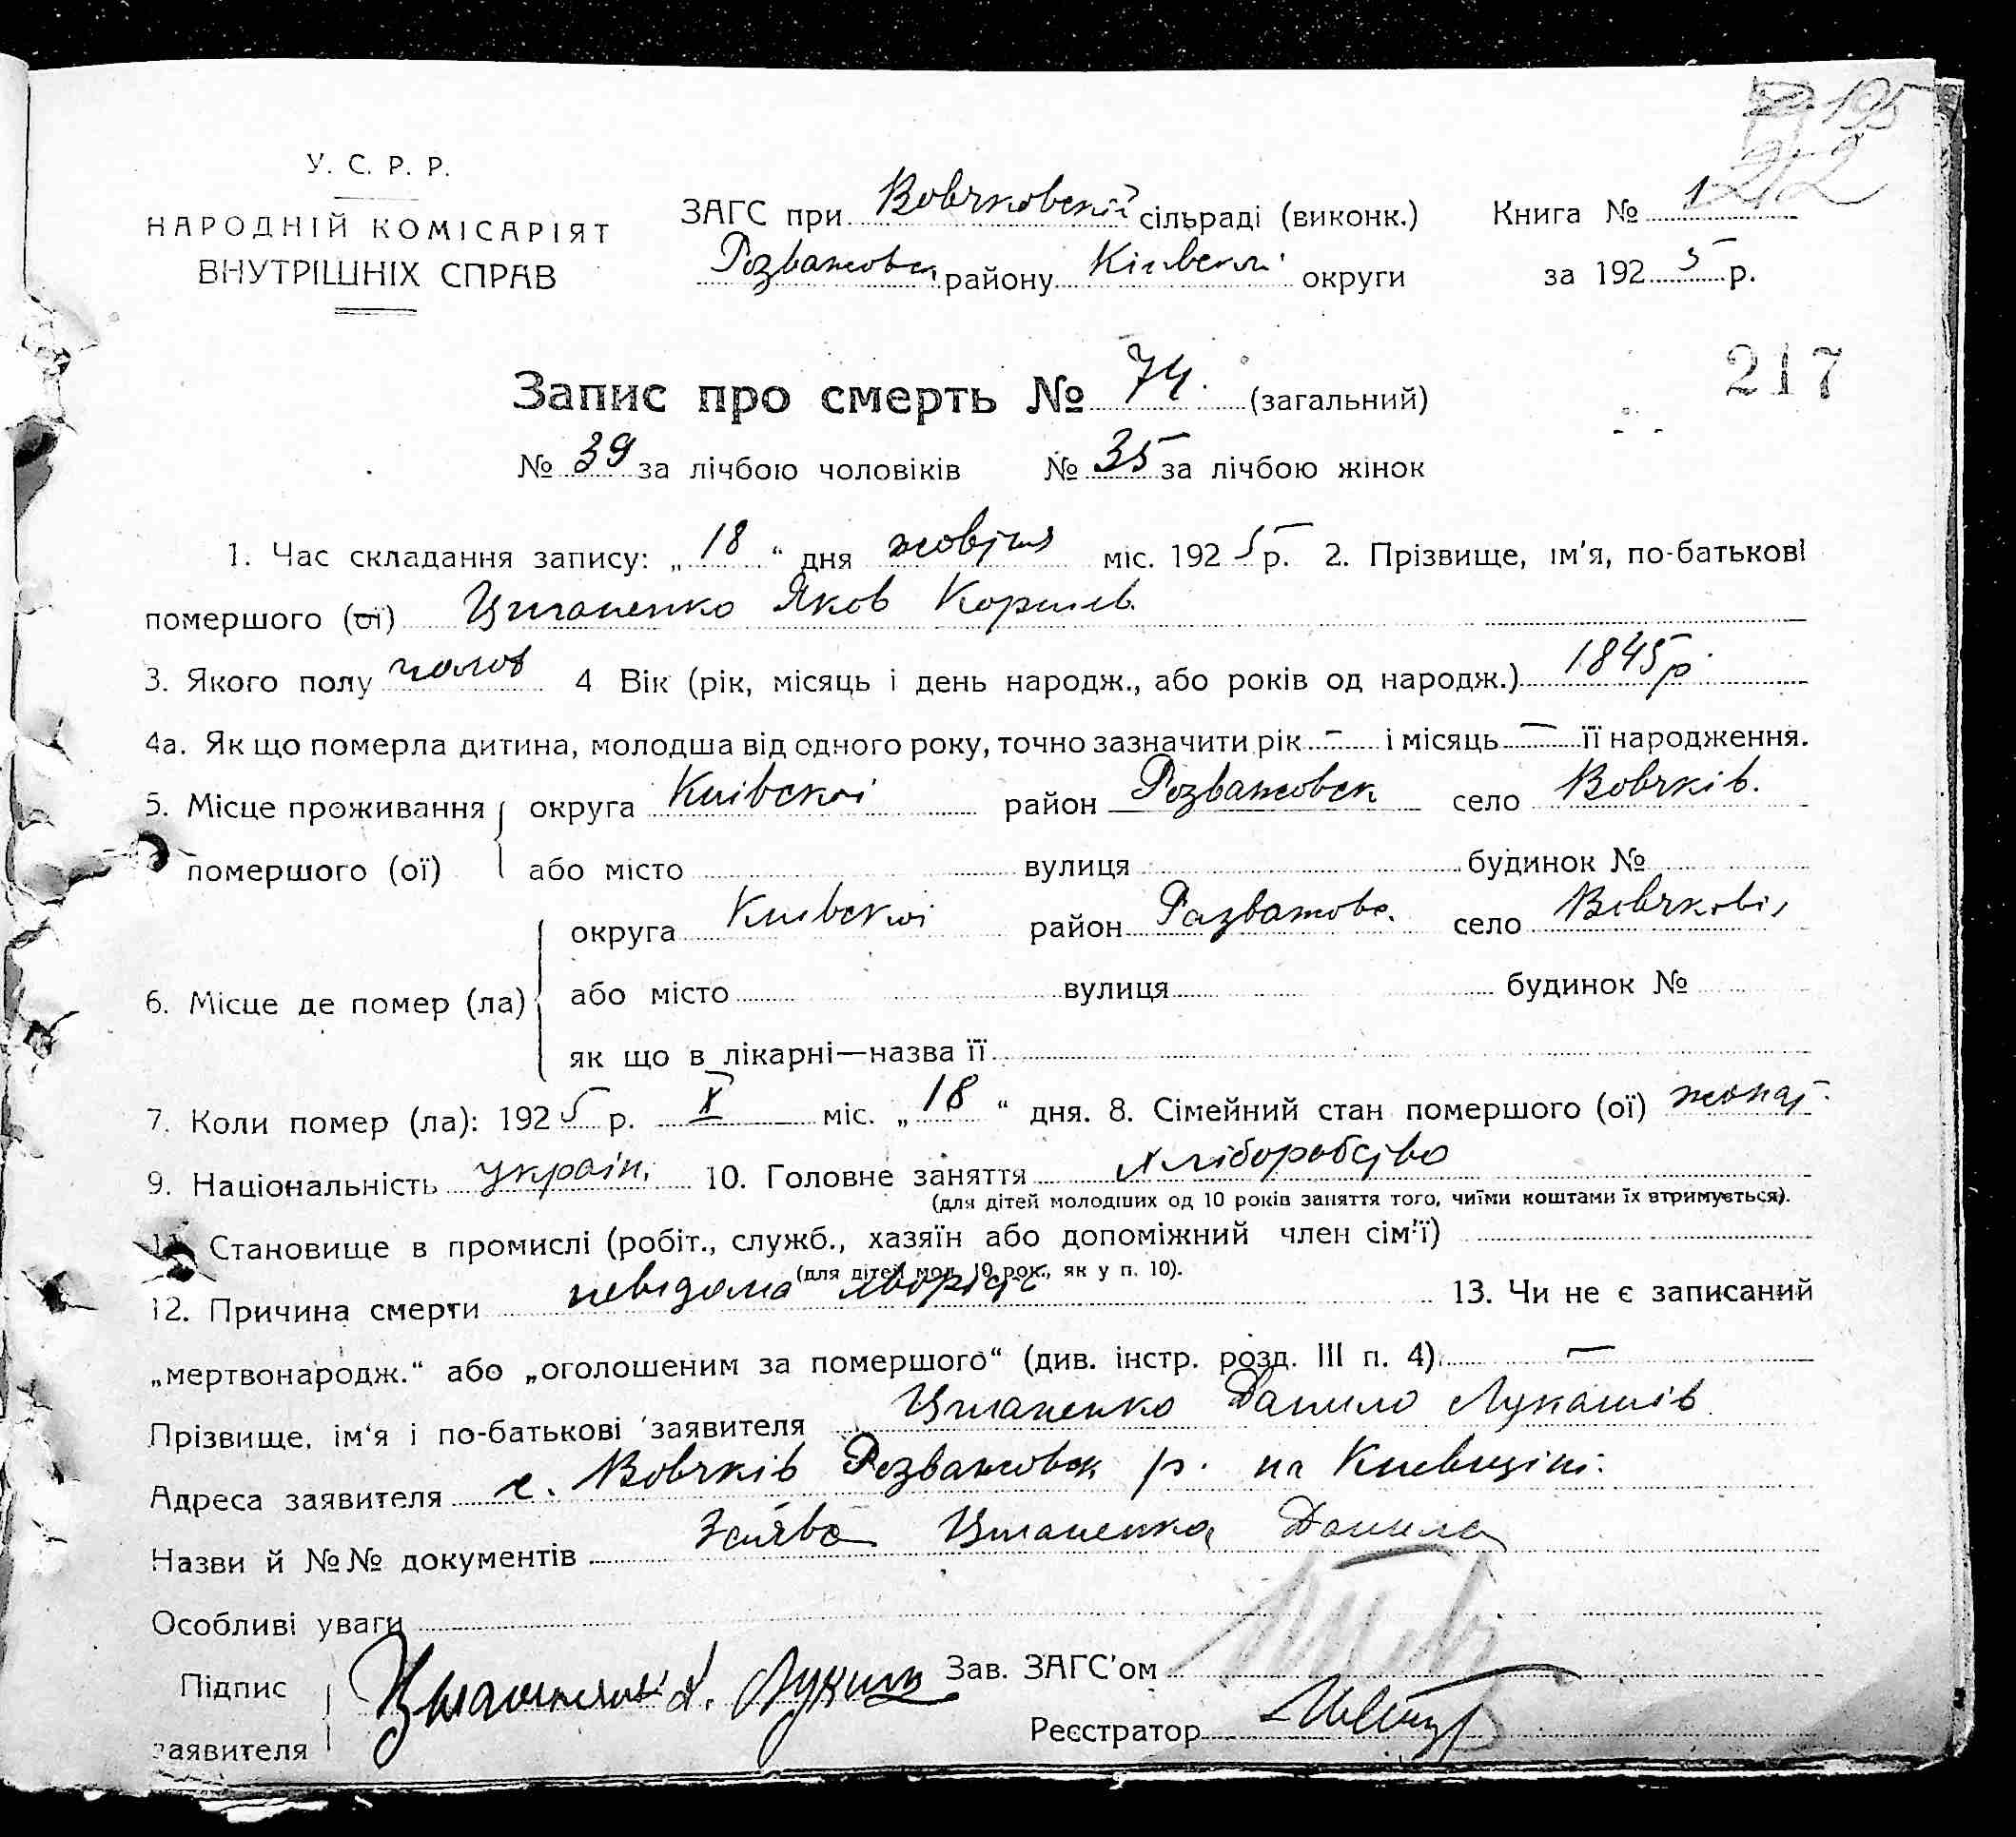 195
212
У. С. Р. Р.
НАРОДНІЙ КОМІСАРІЯТ
ВНУТРІШНІХ СПРАВ
ЗАГС при Вовчковскій сільраді (виконк.) Книга № 1
Розважовск району Київскої округи за 1925 р.
217
Запис про смерть № 74. (загальний)
№ 39 за лічбою чоловіків № 35 за лічбою жінок
1. Час складання запису: „ 18 “ дня жовтня міс. 1925 р. 2. Прізвище, ім'я, по-батькові
помершого (ої) Циганенко Яков Корнієв.
3. Якого полу чолов 4 Вік (рік, місяць і день народж., або років од народж.) 1845 р.
4а. Як що померла дитина, молодша від одного року, точно зазначити рік – і місяць – її народження.
5. Місце проживання округа Київскої район Розважовск село Вовчків.
помершого (ої) або місто вулиця будинок №
округа Київскої район Розважовс. село Вовчків
6. Місце де помер (ла) або місто вулиця будинок №
як що в лікарні—назва її
7. Коли помер (ла): 1925 р. X міс. „ 18 “ дня. 8. Сімейний стан помершого (ої) жонат.
9. Національність україн. 10. Головне заняття Хліборобство
(для дітей молодших од 10 років заняття того, чиїми коштами їх втримується).
Становище в промислі (робіт., служб., хазяїн або допоміжний член сім'ї)
(для дітей мол. 10 рок., як у п. 10).
12. Причина смерти невідома хворість 13. Чи не є записаний
„мертвонародж.“ або „оголошеним за помершого“ (див. інстр. розд. III п. 4) —
Прізвище, ім'я і по-батькові заявителя Циганенко Данило Лукашів
Адреса заявителя с. Вовчків Розважовск р. на Киевщіні.
Назви й №№ документів Заява Циганенка Данила
Особливі уваги
Підпис Зав. ЗАГС'ом
заявителя Реєстратор